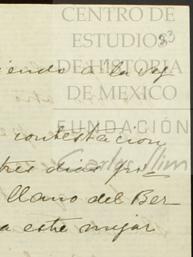 CENTRO DE
ESTUDIOS
DE HISTORIA
DE MEXICO
FUNDACIÓN
Carlos Slim
83
iendo a la
contestacion
tres dias
llano del Ber
a este mejor